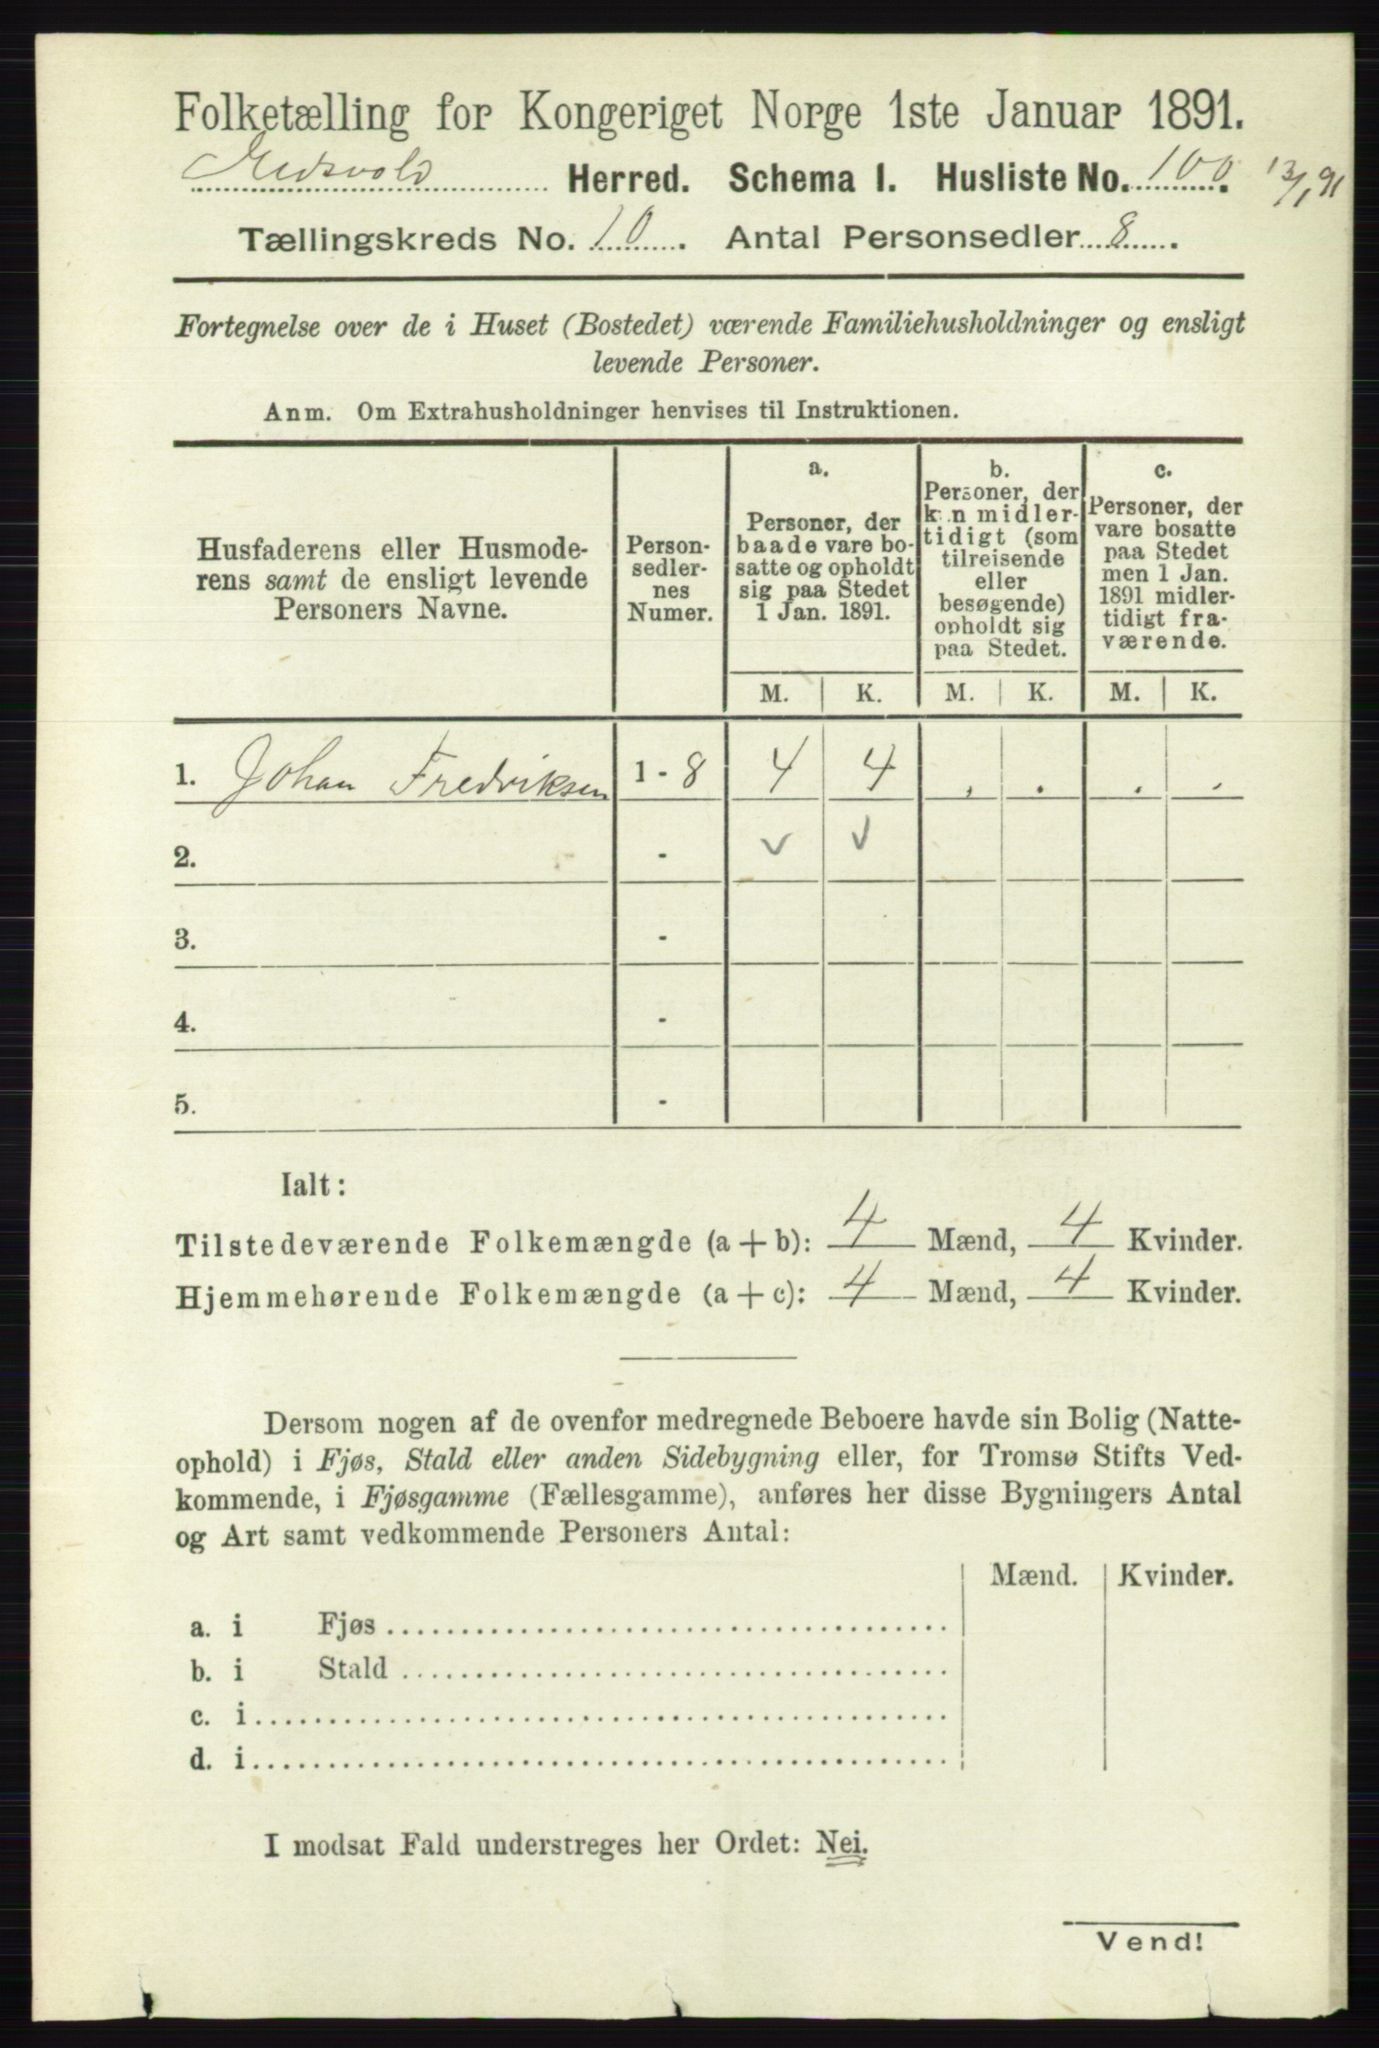 Folketælling for Kongeriget Norge 1ste Januar 1891.
Eidsvold Herred. Schema 1. Husliste No. 100. 13/1 91
Tællingskreds No. 10. Antal Personsedler 8.
Fortegnelse over de i Huset (Bostedet) værende Familiehusholdninger og ensligt
levende Personer.
Anm. Om Extrahusholdninger henvises til Instruktionen.
Husfaderens eller Husmode-
rens samt de ensligt levende
Personers Navne.
Person-
sedler-
nes
Numer.
a.
Personer, der
baade vare bo-
satte og opholdt
sig paa Stedet
1 Jan. 1891.
b.
Personer, der
kun midler-
tidigt (som
tilreisende
eller
besøgende)
opholdt sig
paa Stedet.
c.
Personer, der
vare bosatte
paa Stedet
men 1 Jan.
1891 midler-
tidigt fra-
værende.
M. K. M. K. M. K.
1. Johan Fredriksen 1 - 8 4 4 . . . .
2. - ✓ ✓
3. -
4. -
5. -
Ialt:
Tilstedeværende Folkemængde (a + b): 4 Mænd, 4 Kvinder.
Hjemmehørende Folkemængde (a + c): 4 Mænd, 4 Kvinder.
Dersom nogen af de ovenfor medregnede Beboere havde sin Bolig (Natte-
ophold) i Fjøs, Stald eller anden Sidebygning eller, for Tromsø Stifts Ved-
kommende, i Fjøsgamme (Fællesgamme), anføres her disse Bygningers Antal
og Art samt vedkommende Personers Antal:
Mænd. Kvinder.
a. i Fjøs
b. i Stald
c. i
d. i
I modsat Fald understreges her Ordet: Nei.
Vend!